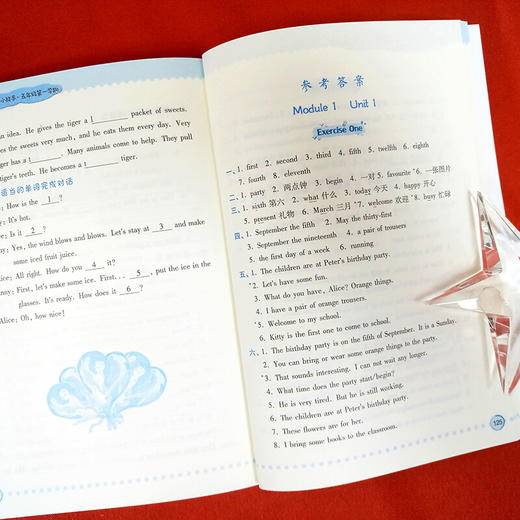 小故事·五年级第一学期
an idea. He gives the tiger a 1 packet of sweets.
the sweets very much, and he eats them every day. Very
tiger has a t . Many animals come to help. They pull
tiger's teeth. He becomes a t tiger.
适当的单词完成对话
How is the 1 ?
It's hot.
Is it 2 ?
Yes, the wind blows and blows. Let's stay at 3 and make
some iced fruit juice.
All right. How do you 4 it?
First, let's make some ice. First... 5 , put the ice in the
glasses. It's ready. How does it 6 ?
Alice: Oh, how nice!
参考答案
Module 1 Unit 1
Exercise One
一、1. first 2. second 3. third 4. fifth 5. twelfth 6. eighth
7. fourth 8. eleventh
二、1. party 2. 两点钟 3. begin 4. 一对 5. favourite *6. 一张图片
三、1. sixth 第六 2. what 什么 3. today 今天 4. happy 开心
5. present 礼物 6. March 三月 *7. welcome 欢迎 *8. busy 忙碌
四、1. September the fifth 2. May the thirty-first
3. September the nineteenth 4. a pair of trousers
5. the first day of a week 6. running
五、1. The children are at Peter's birthday party.
*2. Let's have some fun.
3. What do you have, Alice? Orange things.
4. I have a pair of orange trousers.
*5. Welcome to my school.
6. Kitty is the first one to come to school.
六、1. The birthday party is on the fifth of September. It is a Sunday.
2. You can bring or wear some orange things to the party.
*3. That sounds interesting. I can not wait any longer.
4. What time does the party start/begin?
5. He is very tired. But he is still working.
6. The children are at Peter's birthday party.
7. These flowers are for her.
8. I bring some books to the classroom.
125